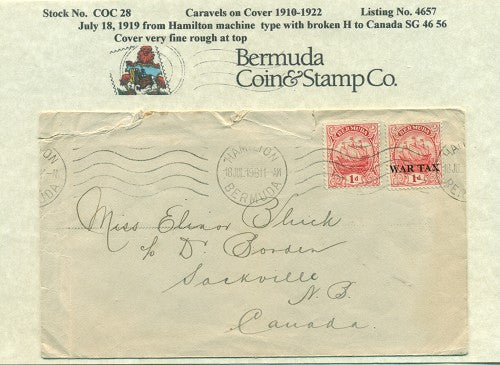 Stock No. COC 28 Caravels on Cover 1910-1922 Listing No. 4657
July 18, 1919 from Hamilton machine type with broken H to Canada SG 46 56
Cover very fine rough at top
Bermuda
Coin & Stamp Co.
HAMILTON
BERMUDA
BERMUDA
1d
BERMUDA
WAR TAX
1d
Miss Elinor Bluck
c/o Dr. Borden
Sackville
N.B.
Canada.